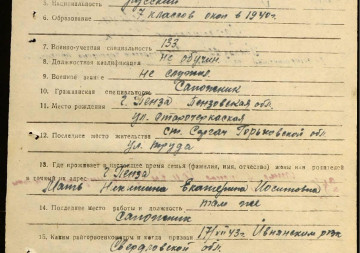 5. Национальность Русский
6. Образование 7 классов окон в 1940г.
7. Военно-учетная специальность 133
8. Должностная квалификация не обучен
9. Военное звание не служил
10. Гражданская специальность Сапожник
11. Место рождения г. Пенза Пензовская обл.
ул.
12. Последнее место жительства ст. Сергач Горьковской обл.
ул. Труда
13. Где проживает в настоящее время семья (фамилия, имя, отчество) жены или родителей
и точный их адрес г. Пенза
Мать Никитина Екатерина
14. Последнее место работы и должность там же
Сапожник
15. Каким райгорвоенкоматом и когда призван 17/VII 43г.
Свердловской обл.